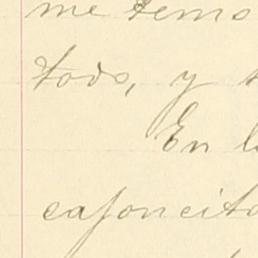 me temo
tods, y
En l
cajoncito